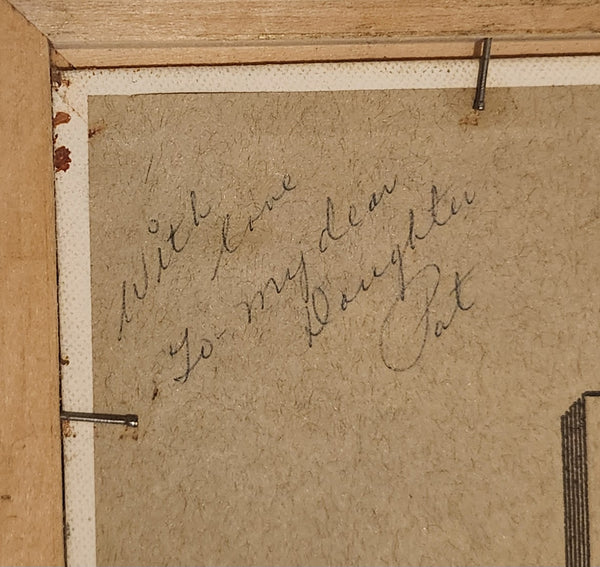 With love
To my dear
Daughter
Pat